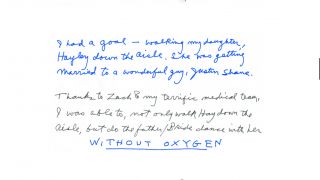 I had a goal – walking my daughter,
Hayley down the aisle. She was getting
married to a wonderful guy, Justin Shane.
Thanks to Zach & my terrific medical team,
I was able to, not only walk Hay down the
aisle, but do the father/Bride dance with her
WITHOUT OXYGEN